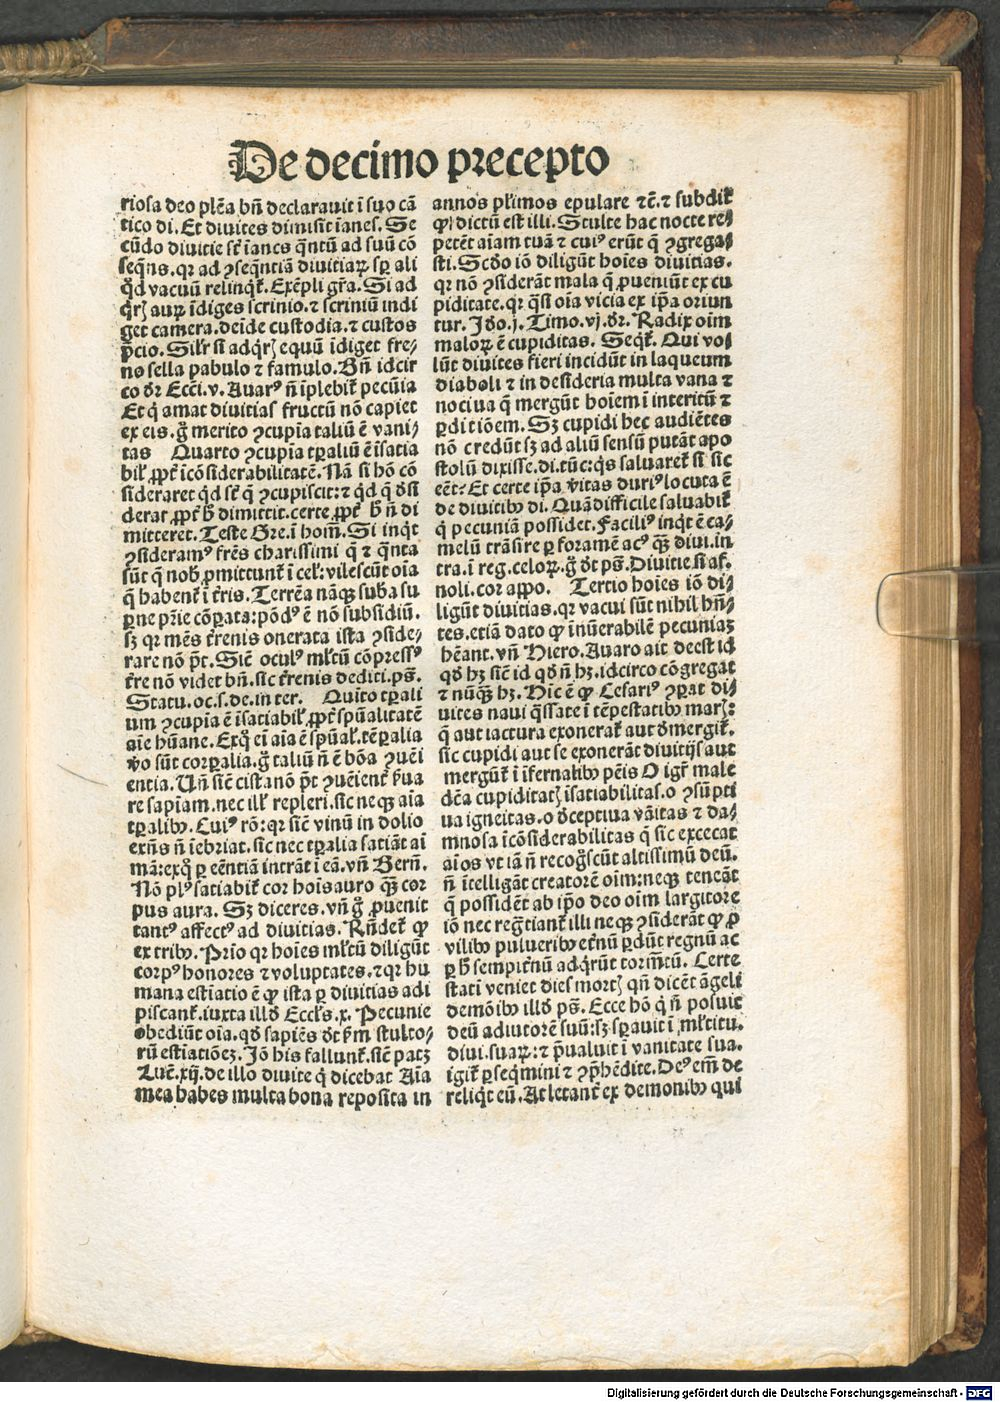 De decimo precepto
riosa deo plēa bn̄ declarauit ī suo cā
tico di. Et diuites dimisit īanes. Se
cūdo diuitie sūt īanes qn̄tū ad suū cō
seqn̄s. qꝛ ad ꝯseqn̄tiā diuitiaꝝ sꝑ ali
qd vacuū relinqt̄. Exēpli gr̄a. Si ad
qris auꝝ īdiges scrinio. ⁊ scriniū indi
get camera. deīde custodia. ⁊ custos
p̄cio. Silr̄ si adqris equū īdiget fre⸗
no sella pabulo ⁊ famulo. Bn̄ idcir
co dꝛ Ecci. v. Auarꝰ n̄ īplebit̄ pecūia
Et q̄ amat diuitias fructū nō capiet
ex eis. g̊ merito ꝯcupīa taliū ē vani⸗
tas Quarto ꝯcupīa tꝑaliū ē īsatia
bil̄ ꝓpt̄ īcōsiderabilitatē. Nā si hō cō
sideraret qd sūt q̄ ꝯcupiscit: ⁊ qd q̄ dsi
derat ꝓpt̄ b̄ dimittit. certe ꝓpt̄ b̄ n̄ di
mitteret. Teste Gre. ī hom̄. Si inqt
ꝯsideramꝰ fr̄es charissimi q̄ ⁊ q̄nta
sūt q̄ nob̄ ꝓmittunt̄ ī cel̄: vilescūt oīa
q̄ habent̄ ī tr̄is. Terrēa nāqꝫ suba su
ꝑne pr̄ie cōꝑata: pōdꝰ ē nō subsidiū.
sꝫ qꝛ mēs tr̄enis onerata ista ꝯside⸗
rare nō pōt. Sic̄ oculꝰ ml̄tū cōpressꝰ
tr̄e nō videt bn̄. sic tr̄enis dediti. ps̄.
Statu. oc. s. de. in ter. Quīto tꝑali
um ꝯcupīa ē īsatiabil̄ ꝓpt̄ spūalitatē
aīe hūane. Exq̊ eī aīa ē spūal̄. tēꝑalia
vo sūt corꝑalia. g̊ taliū n̄ ē bōa ꝯuēi
entia. Un̄ sic̄ cista nō pōt ꝯuēient̄ ꝑua
re sapīam. nec ill̄ repleri. sic neqꝫ aīa
tꝑalibꝰ. Cuiꝰ rō: qꝛ sic̄ vinū in dolio
exn̄s n̄ īebriat. sic nec tꝑalia satiāt aī
mā: exq̊ ꝑ cēntiā intrāt ī eā. vn̄ Bern̄.
Nō plꝰ satiabit̄ cor hoīs auro qꝫ cor
pus aura. Sꝫ diceres. vn̄ g̊ ꝓuenit
tantꝰ affectꝰ ad diuitias. Rn̄det̄ ꝙ
ex tribꝰ. Prīo qꝛ hoīes ml̄tū diligūt
corpꝰ honores ⁊ voluptates. ⁊ qꝛ hu
mana estīatio ē ꝙ ista ꝑ diuitias adi
piscant̄. iuxta illd Eccl̄s. x. Pecunie
obediūt oīa. qd sapiēs dt ẜm stulto⸗
rū estīationeꝫ. Jō his fallunt̄. sic̄ patꝫ
Luc̄. xij. de illo diuite q̄ dicebat Aīa
mea habes multa bona reposita in
annos pl̄imos epulare ⁊c̄. ⁊ subdit̄
ꝙ dictū est illi. Stulte hac nocte re⸗
petēt aīam tuā ⁊ cuiꝰ erūt q̄ ꝯgrega⸗
sti. Scdo iō diligūt hoīes diuitias.
qꝛ nō ꝯsiderāt mala q̄ ꝓueniūt ex cu
piditate. qꝛ q̄si oīa vicia ex ip̄a oriun
tur. Jdo. j. Timo. vj. dꝛ. Radix oīm
maloꝝ ē cupiditas. Seqt̄. Qui vo⸗
lūt diuites fieri incidūt in laqueum
diaboli ⁊ in desideria multa vana ⁊
nociua q̄ mergūt hoīem ī interitū ⁊
ꝑditiōem. Sꝫ cupidi hec audiētes
nō credūt sꝫ ad aliū sensū putāt apo
stolū dixisse. di. tūc: qs saluaret̄ si sic
eēt? Et certe ip̄a vitas duriꝰ locuta ē
de diuitibꝰ di. Quā difficile saluabit̄
q̄ pecuniā possidet. Faciliꝰ inqt ē ca⸗
melū trāsire ꝑ foramē acꝰ qꝫ diui. in
tra. ī reg. celoꝝ. g̊ dt ps̄. Diuitie si af.
noli. cor appo. Tertio hoīes iō di⸗
ligūt diuitias. qꝛ vacui sūt nihil hn̄⸗
tes. etiā dato ꝙ īnūerabilē pecuniaꝫ
hēant. vn̄ Hiero. Auaro ait deest id
qd hꝫ sic̄ id qd n̄ hꝫ. idcirco cōgregat
⁊ nūqꝫ hꝫ. Hic ē ꝙ Cesariꝰ ꝯꝑat di⸗
uites naui q̄ssate ī tēpestatibꝰ maris:
q̄ aut iactura exonerat̄ aut dmergit̄.
sic cupidi aut se exonerāt diuitijs aut
mergūt̄ ī īfernalibꝰ pēis O igr̄ male
dēa cupiditatis īsatiabilitas. o ꝯsūpti
ua igneitas. o dceptiua vāitas ⁊ da⸗
mnosa īcōsiderabilitas q̄ sic excecat
aīos vt iā n̄ recog̊scūt altissimū deū.
n̄ ītelligāt creatorē oīm: neqꝫ teneāt
q̄ possidēt ab ip̄o deo oīm largitore
iō nec reg̊tiant̄ illi neqꝫ ꝯsiderāt ꝙ ꝓ
vilibꝰ pulueribꝰ et̄nū ꝑdūt regnū ac
ꝑ b̄ sempit̄nū adq̄rūt torm̄tū. Certe
stati veniet dies mortis qn̄ dicēt āgeli
demōibꝰ illd ps̄. Ecce hō q̄ n̄ posuit
deū adiutorē suū: sꝫ sꝑauit ī ml̄titu.
diui. suaꝝ: ⁊ p̄ualuit ī vanitate sua.
igit̄ ꝑseqmini ⁊ ꝯp̄hēdite. Deꝰ em̄ de
reliqt eū. At letant̄ ex demonibꝰ qui
Digitalisierung gefördert durch die Deutsche Forschungsgemeinschaft - DFG